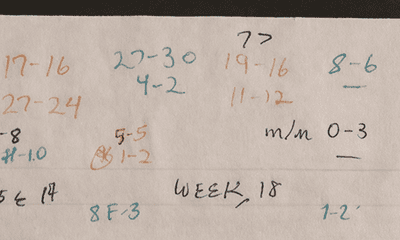 77
17-16 27-30 19-16 8-6
4-2
27-24 11-12
-8 5-5 m/m 0-3
1-2
WEEK, 18
8F-3 1-2